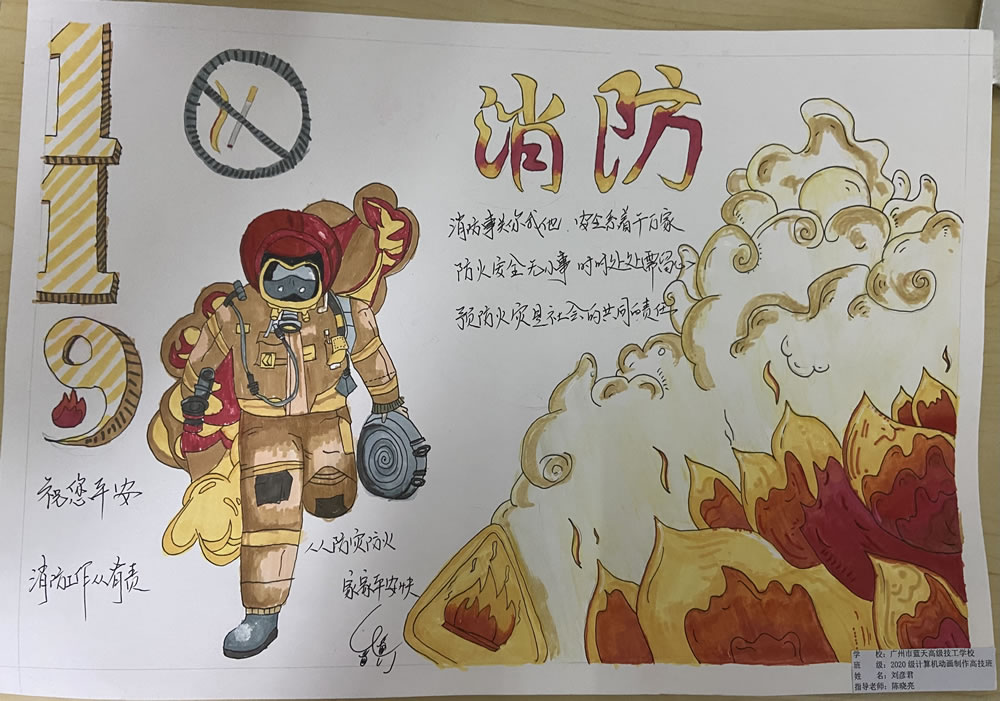 119
消防
消防事关你我他.安全系着千万家
防火安全无小事 时时处处需留心
预防火灾是社会的共同的责任
祝您平安
消防工作人人有责
人人防灾防火
家家平安快
学 校：广州市蓝天高级技工学校
班 级：2020级计算机动画制作高技班
姓 名：刘彦君
指导老师：陈晓亮